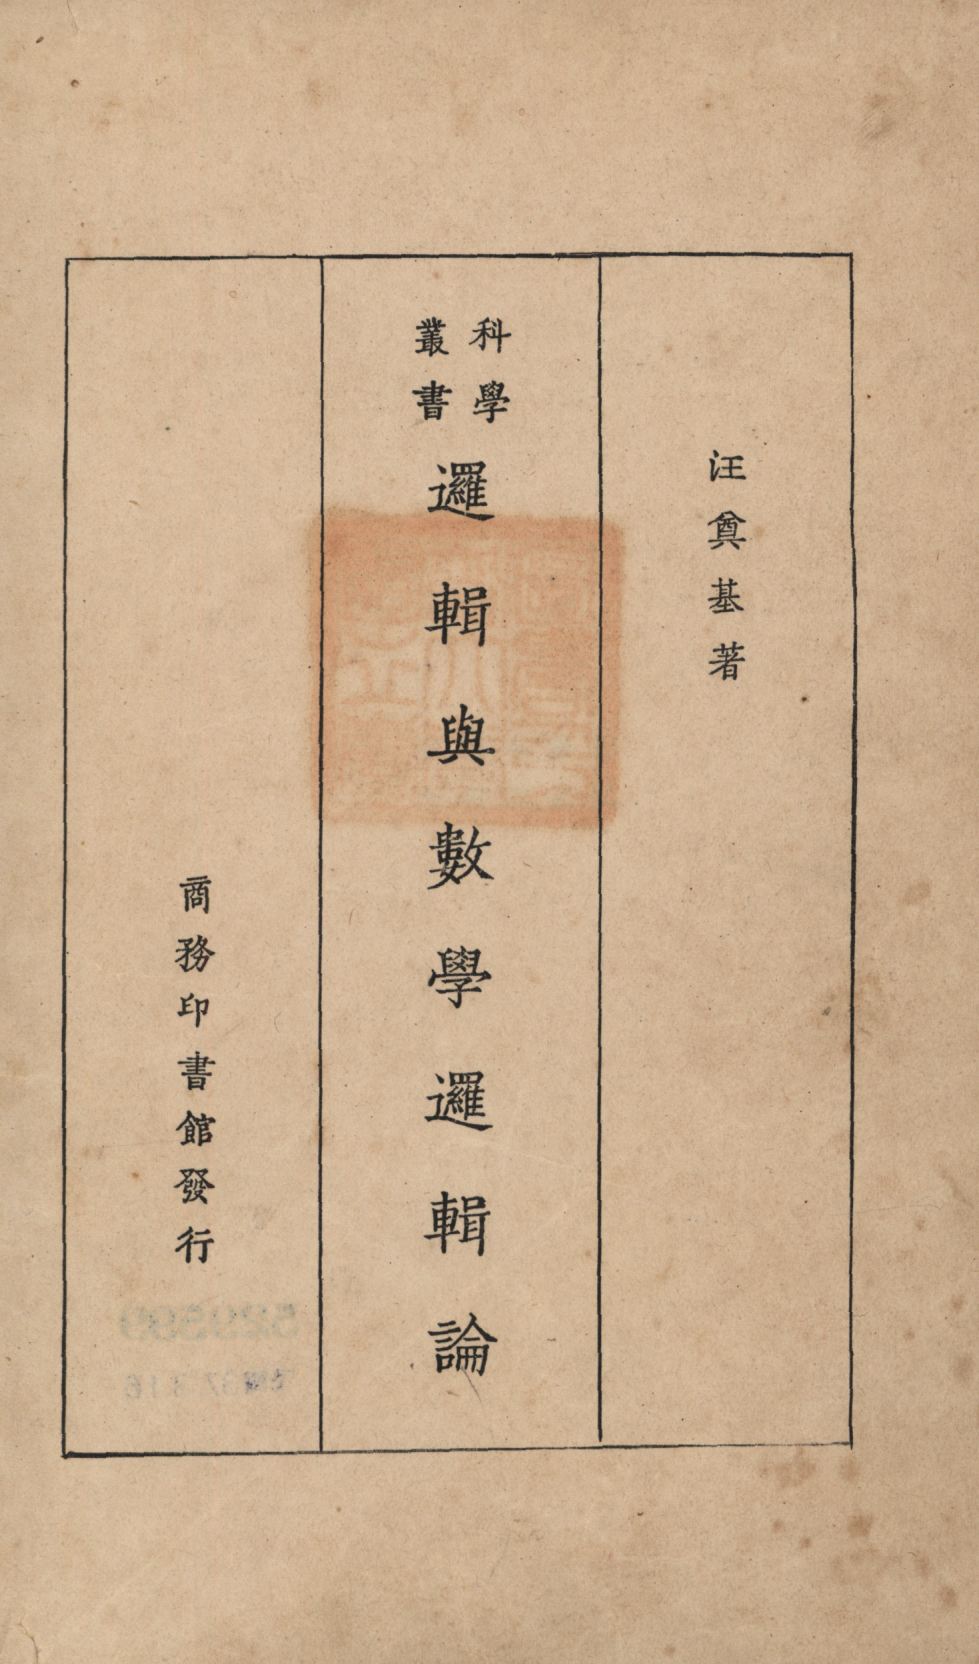 汪奠基著
科學叢書
邏輯與數學邏輯論
商務印書館發行